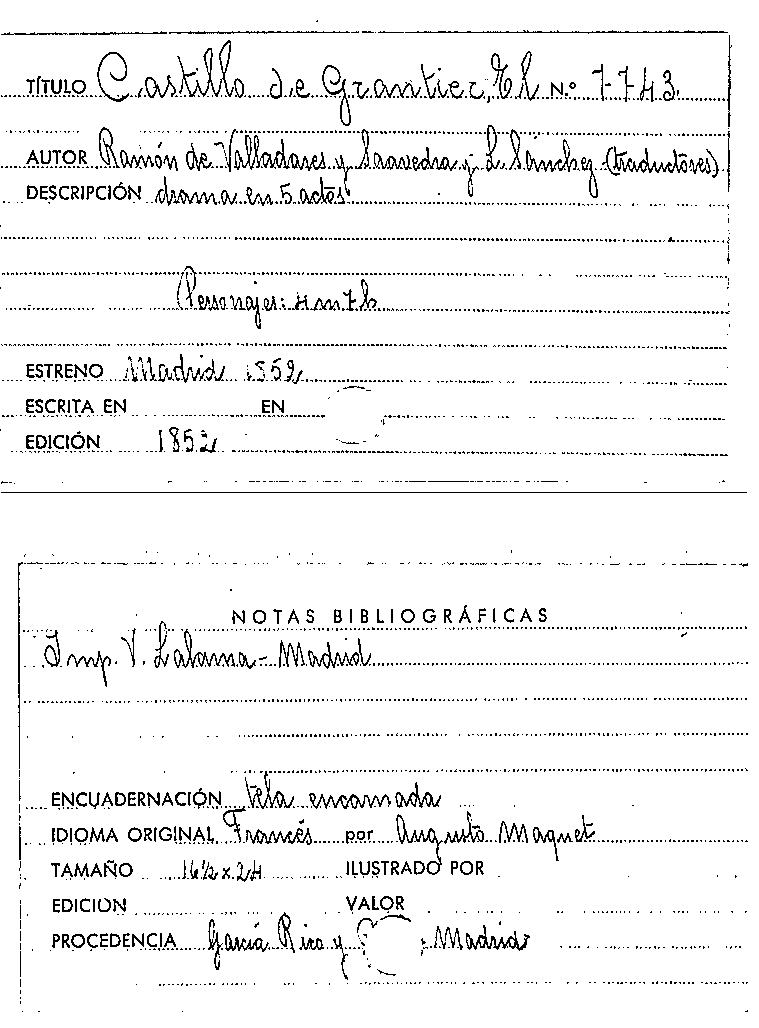 TÍTULO Castillo de Grantier, El N.º 7-743.
AUTOR Ramón de Valladares y Saavedra y L. Sánchez (traductores)
DESCRIPCIÓN drama en 5 actos.
Personajes: 4 m 7 h
ESTRENO Madrid 1852
ESCRITA EN EN
EDICIÓN 1852
NOTAS BIBLIOGRÁFICAS
Imp. V. Lalama - Madrid
ENCUADERNACIÓN tela encarnada
IDIOMA ORIGINAL Francés por Augusto Maquet
TAMAÑO 16½ x 24 ILUSTRADO POR
EDICION VALOR
PROCEDENCIA García Rico y Madrid